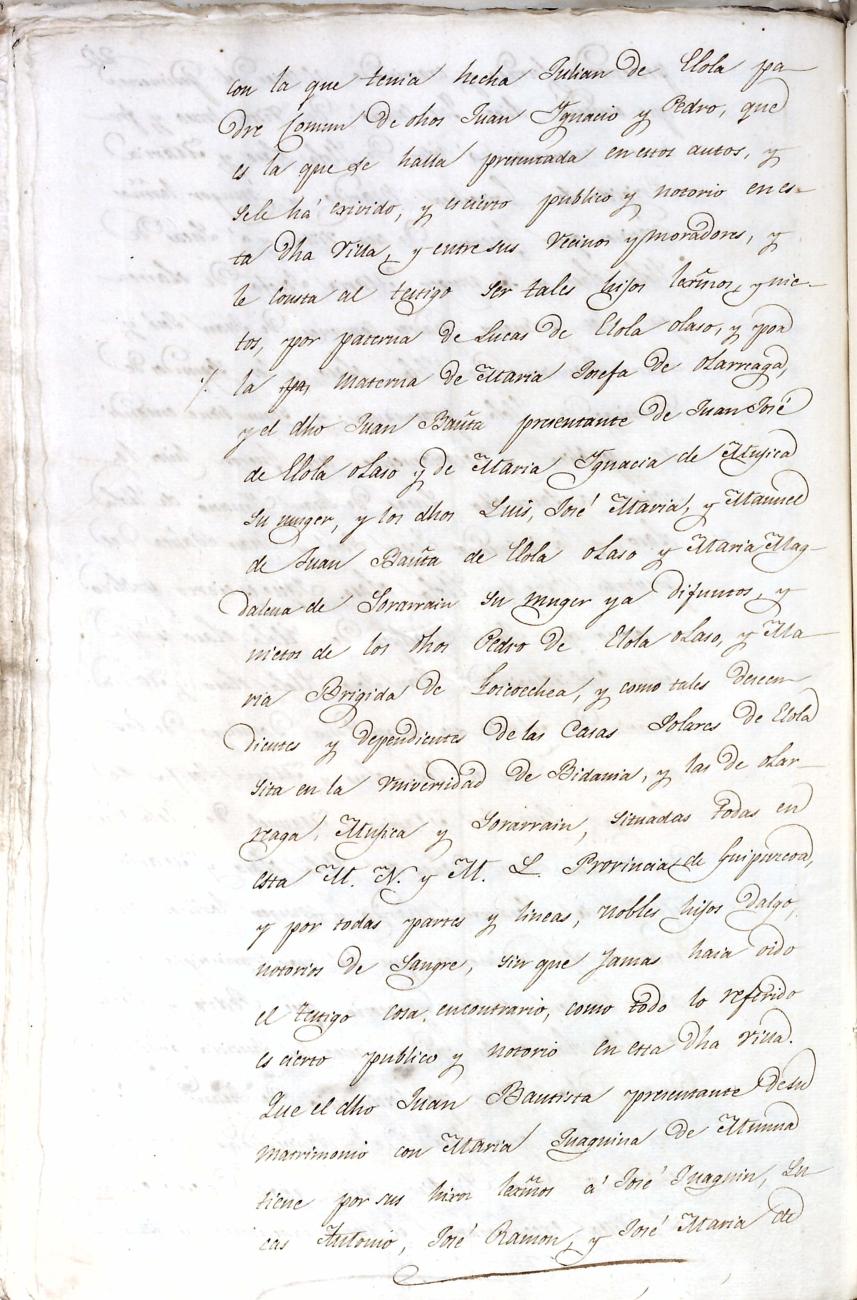 con la que tenia hecha Julian de Elola pa-
dre Comun de dhos Juan Ygnacio y Pedro, que
es la que se halla presentada en estos autos, y
se le há exivido, y es cierto publico y notorio en es-
ta dha Villa, y entre sus Vecinos y moradores, y
le consta al testigo ser tales hijos lexmos, y nie-
tos, por paterna de Lucas de Elola olaso, y por
la materna de Maria Josefa de olarreaga,
y el dho Juan Bauta presentante de Juan José
de Elola olaso y de Maria Ygnacia de Mujica
su muger, y los dhos Luis, José Maria, y Manuel
de Juan Bauta de Elola olaso y Maria Mag-
dalena de Sorarrain su muger ya difuntos, y
nietos de los dhos Pedro de Elola olaso, y Ma-
ria Brigida de Goicoechea, y como tales descen-
dientes y dependientes de las Casas Solares de Elola
sita en la Vniversidad de Bidania, y las de olar-
reaga, Mujica y Sorarrain, situadas todas en
esta M. N. y M. L. Provincia de Guipuzcoa,
y por todas partes y lineas, nobles hijos dalgo,
notorios de Sangre, sin que Jamas haia oido
el testigo cosa encontrario, como todo lo referido
es cierto publico y notorio en esta dha Villa.
Que el dho Juan Bautista presentante de su
matrimonio con Maria Juaquina de
tiene por sus hixos lexmos á José Juaquin, Lu-
cas Antonio, José Ramon, y José Maria de